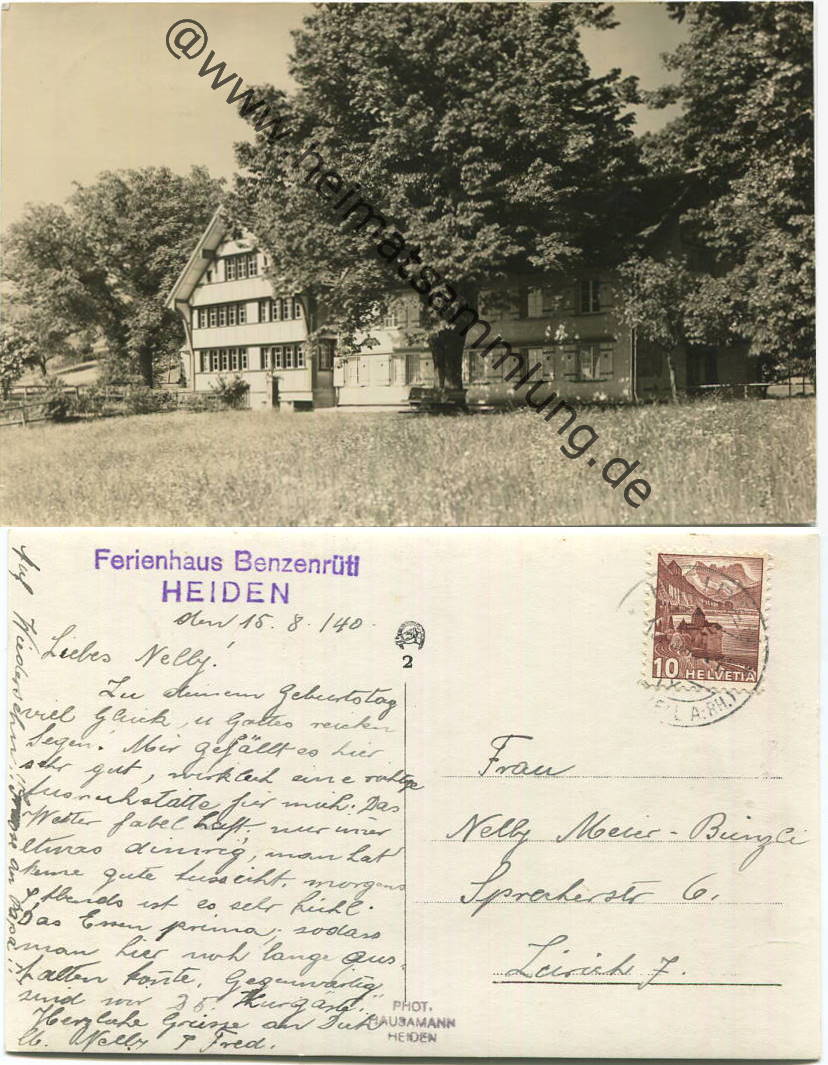 @www.heimatsammlung.de
Ferienhaus Benzenrüti
HEIDEN
den 15. 8. 140.
Liebes Nelly!
Zu deinem Geburtstag
viel Glück, u Gottes reichen
Segen! Mir gefällt es hier
sehr gut, wirklich eine richtige
Ausruhstätte für mich. Das
Wetter fabelhaft, nur immer
etwas dunstig, man hat
keine gute Aussicht. morgens
& Abends ist es sehr kühl.
Das Essen prima, sodass
man hier noch lange aus-
halten könte. Gegenwärtig
sind wir 35 Kurgäste.
Herzliche Grüsse an Dich
lb. Nelly & Fred.
Auf Wiedersehn!! Grüsse an Papa!!
2
10 HELVETIA
Frau
Nelly Meier-Bünzli
Sprecherstr 6.
Zürich 7.
PHOT.
HAUSAMANN
HEIDEN